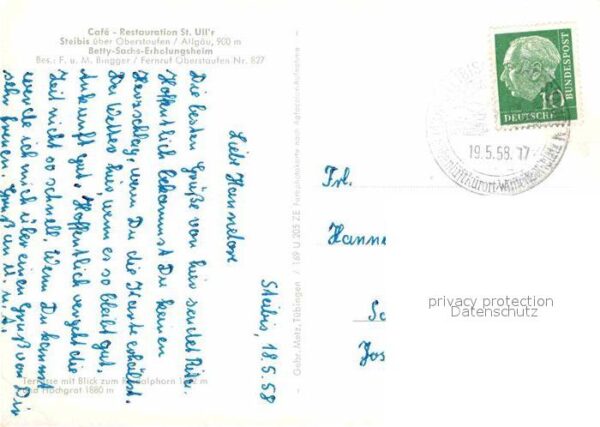 Café - Restauration St. Ull'r
Steibis über Oberstaufen / Allgäu, 900 m
Betty-Sachs-Erholungsheim
Bes.: F. u. M. Bingger / Fernruf Oberstaufen Nr. 827
Steibis, 18.5.58
Liebe Hannelore
Die besten Grüße von hier sendet Dir
Hoffentlich bekommst Du keinen
Herzschlag, wenn Du die Karte erhältst.
Das Wetter hier, wenn es so bleibt gut.
Ankunft gut. Hoffentlich vergeht die
Zeit nicht so schnell. Wenn Du kannst
werde ich mich über einen Gruß von Dir
sehr freuen. Gruß an
Terrasse mit Blick zum
und Hochgrat 1880 m
Gebr. Metz, Tübingen / 169 U 205 ZE
10
DEUTSCHE
BUNDESPOST
19.5.58.-17
Frl.
Hanne
Jos
privacy protection
Datenschutz